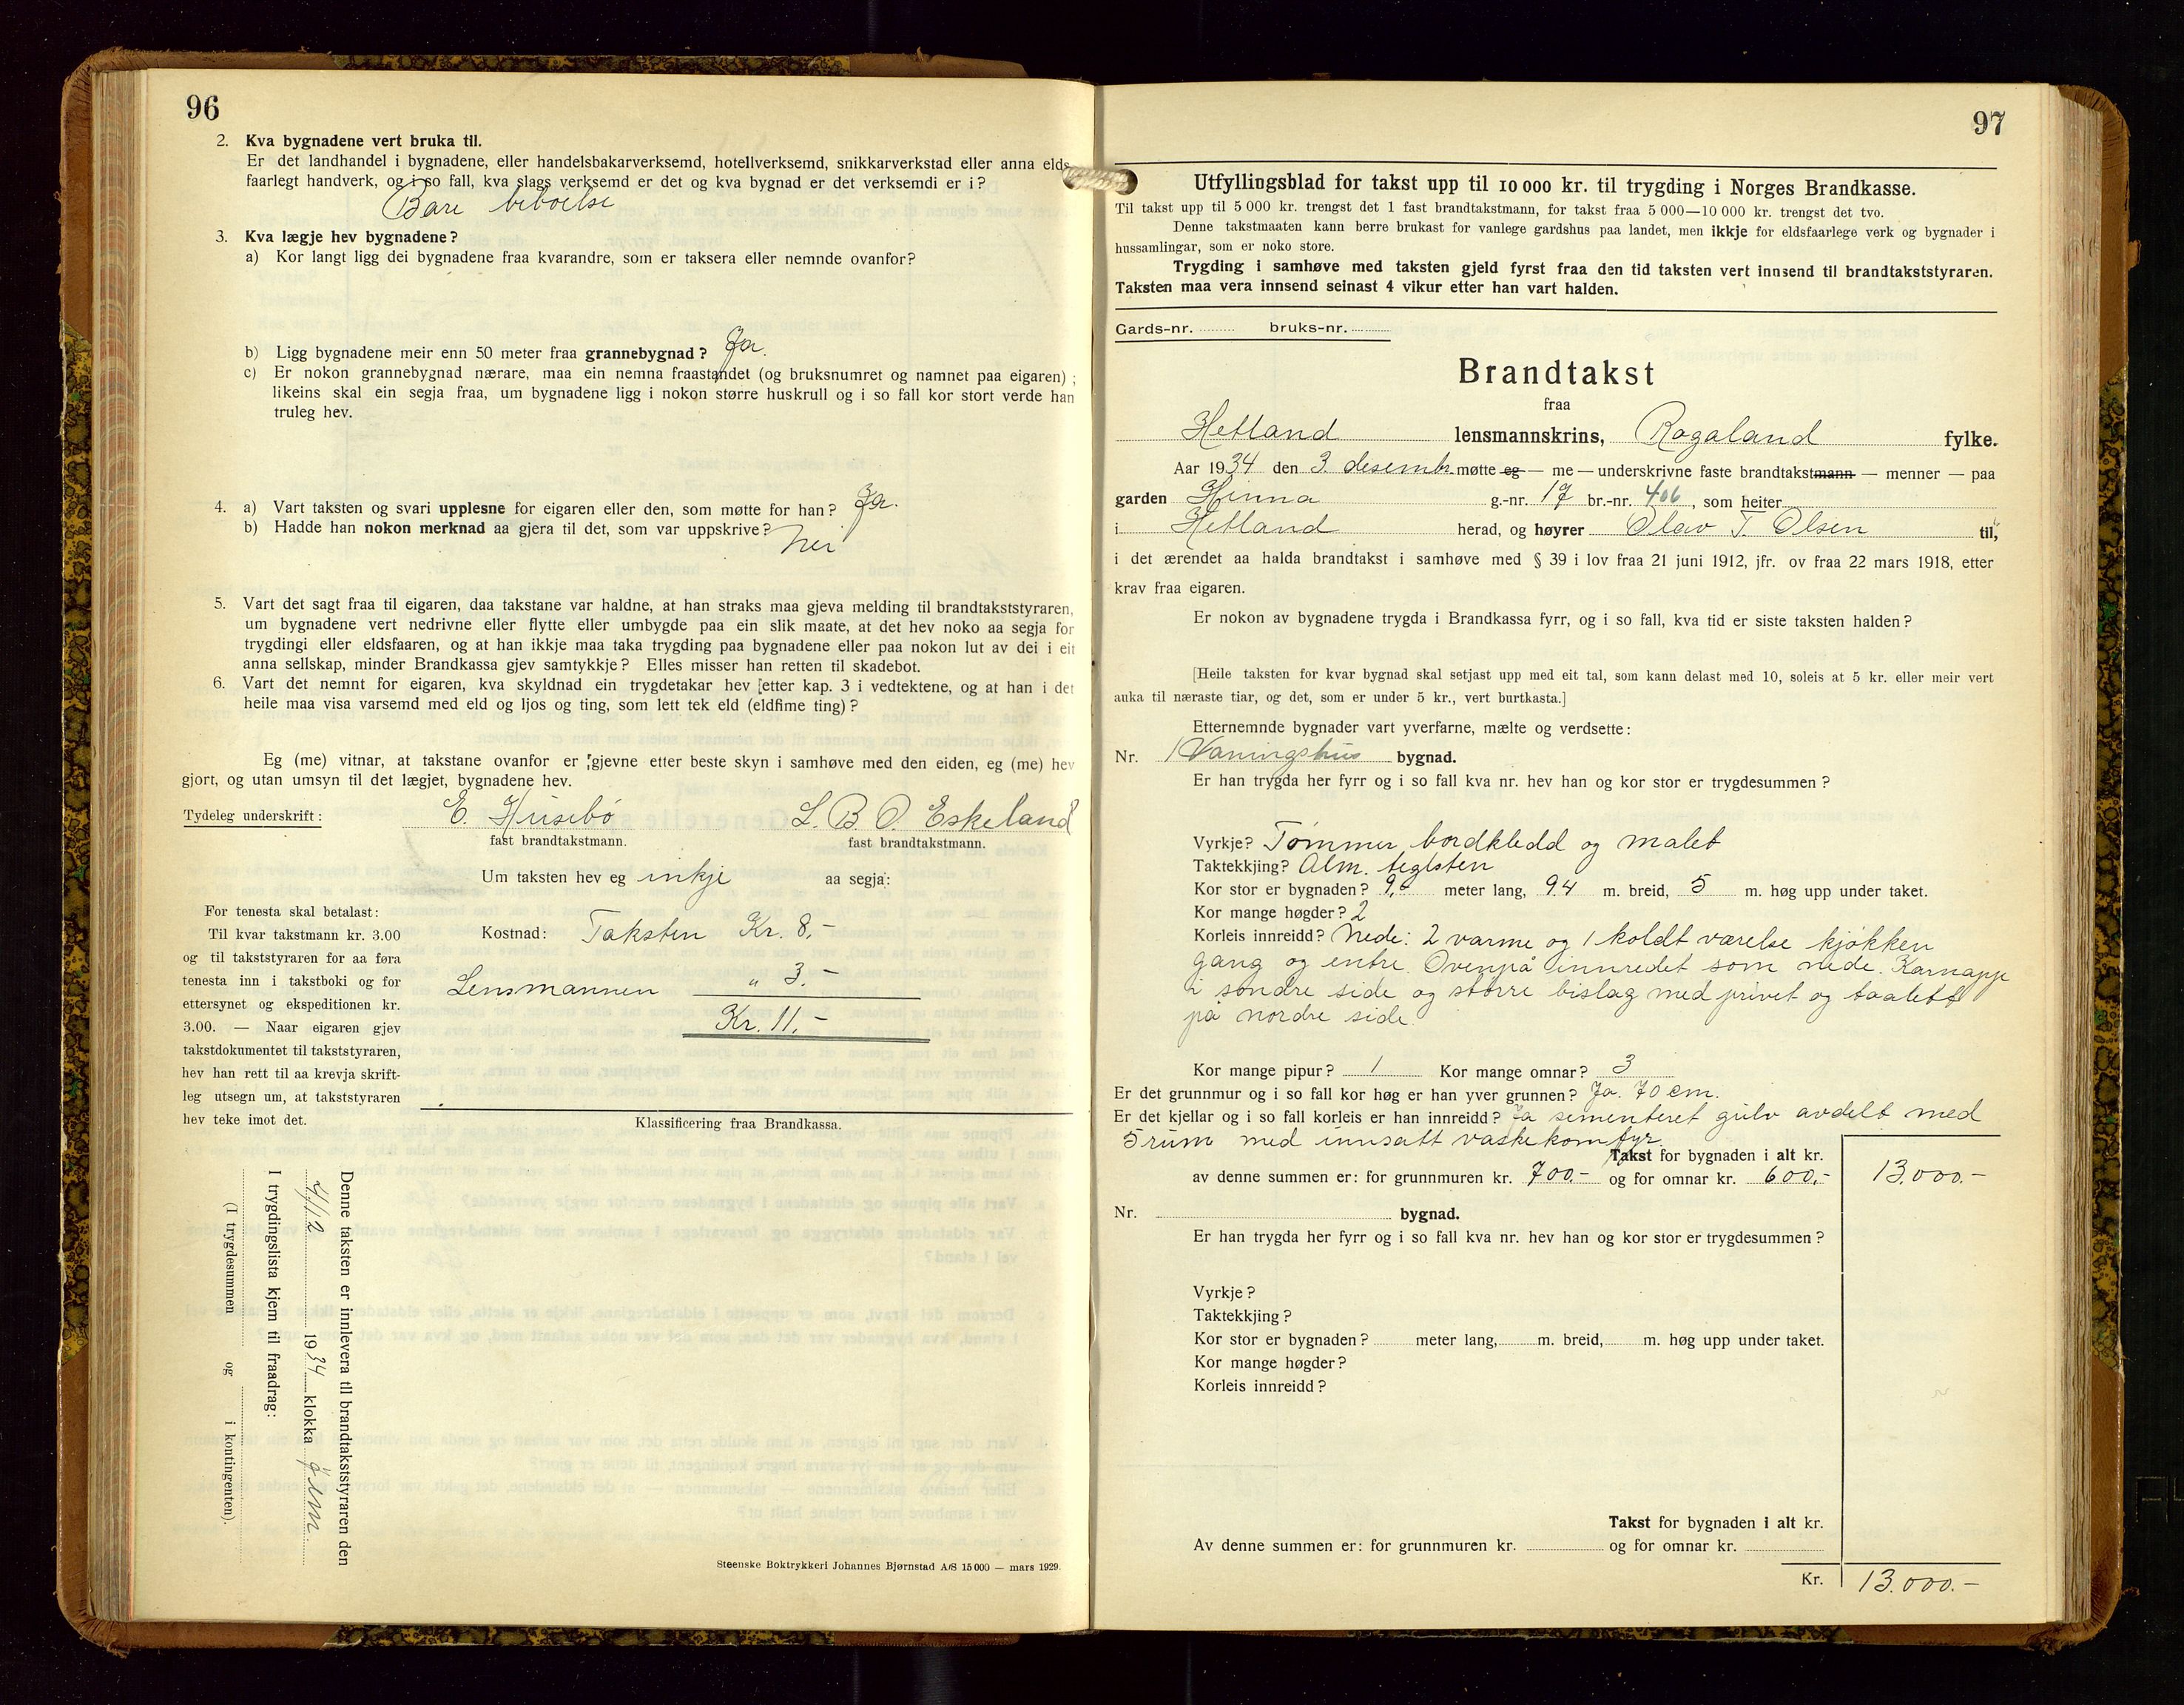 96
2. Kva bygnadene vert bruka til.
Er det landhandel i bygnadene, eller handelsbakarverksemd, hotellverksemd, snikkarverkstad eller anna elds-
faarlegt handverk, og i so fall, kva slags verksemd er det og kva bygnad er det verksemdi er i?
Bare beboelse
3. Kva lægje hev bygnadene?
a) Kor langt ligg dei bygnadene fraa kvarandre, som er taksera eller nemnde ovanfor?
b) Ligg bygnadene meir enn 50 meter fraa grannebygnad? Ja.
c) Er nokon grannebygnad nærare, maa ein nemna fraastandet (og bruksnumret og namnet paa eigaren);
likeins skal ein segja fraa, um bygnadene ligg i nokon større huskrull og i so fall kor stort verde han
truleg hev.
4. a) Vart taksten og svari upplesne for eigaren eller den, som møtte for han? Ja.
b) Hadde han nokon merknad aa gjera til det, som var uppskrive? Nei
5. Vart det sagt fraa til eigaren, daa takstane var haldne, at han straks maa gjeva melding til brandtakststyraren,
um bygnadene vert nedrivne eller flytte eller umbygde paa ein slik maate, at det hev noko aa segja for
trygdingi eller eldsfaaren, og at han ikkje maa taka trygding paa bygnadene eller paa nokon lut av dei i eit
anna sellskap, minder Brandkassa gjev samtykkje? Elles misser han retten til skadebot.
6. Vart det nemnt for eigaren, kva skyldnad ein trygdetakar hev [etter kap. 3 i vedtektene, og at han i det
heile maa visa varsemd med eld og ljos og ting, som lett tek eld (eldfime ting)?
Eg (me) vitnar, at takstane ovanfor er gjevne etter beste skyn i samhøve med den eiden, eg (me) hev
gjort, og utan umsyn til det lægjet, bygnadene hev.
Tydeleg underskrift: E. Husebø L. B. O. Eskeland
fast brandtakstmann. fast brandtakstmann.
Um taksten hev eg inkje aa segja:
For tenesta skal betalast:
Til kvar takstmann kr. 3.00
og til takststyraren for aa føra
tenesta inn i takstboki og for
ettersynet og ekspeditionen kr.
3.00. — Naar eigaren gjev
takstdokumentet til takststyraren,
hev han rett til aa krevja skrift-
leg utsegn um, at takststyraren
hev teke imot det.
Kostnad: Taksten Kr. 8,-
Lensmannen " 3.-
Kr. 11.-
Klassificering fraa Brandkassa.
Denne taksten er innlevera til brandtakststyraren den
4/12 1934 klokka 9 em
I trygdingslista kjem til fraadrag:
(I trygdesummen og i kontingenten).
Steenske Boktrykkeri Johannes Bjørnstad A/S 15000 — mars 1929.
97
Utfyllingsblad for takst upp til 10 000 kr. til trygding i Norges Brandkasse.
Til takst upp til 5 000 kr. trengst det 1 fast brandtakstmann, for takst fraa 5 000—10 000 kr. trengst det tvo.
Denne takstmaaten kann berre brukast for vanlege gardshus paa landet, men ikkje for eldsfaarlege verk og bygnader i
hussamlingar, som er noko store.
Trygding i samhøve med taksten gjeld fyrst fraa den tid taksten vert innsend til brandtakststyraren.
Taksten maa vera innsend seinast 4 vikur etter han vart halden.
Gards-nr. bruks-nr.
Brandtakst
fraa
Hetland lensmannskrins, Rogaland fylke.
Aar 1934 den 3. desembr. møtte eg — me — underskrivne faste brandtakstmann — menner — paa
garden Hinna g.-nr. 17 br.-nr. 406, som heiter
i Hetland herad, og høyrer Olav T. Olsen til,
i det ærendet aa halda brandtakst i samhøve med § 39 i lov fraa 21 juni 1912, jfr. ov fraa 22 mars 1918, etter
krav fraa eigaren.
Er nokon av bygnadene trygda i Brandkassa fyrr, og i so fall, kva tid er siste taksten halden?
[Heile taksten for kvar bygnad skal setjast upp med eit tal, som kann delast med 10, soleis at 5 kr. eller meir vert
auka til næraste tiar, og det, som er under 5 kr., vert burtkasta.]
Etternemnde bygnader vart yverfarne, mælte og verdsette:
Nr. 1 Vaningshus bygnad.
Er han trygda her fyrr og i so fall kva nr. hev han og kor stor er trygdesummen?
Vyrkje? Tømmer bordkledd og malet
Taktekkjing? Alm. teglsten
Kor stor er bygnaden? 9, meter lang, 9.4 m. breid, 5 m. høg upp under taket.
Kor mange høgder? 2
Korleis innreidd? Nede: 2 varme og 1 koldt værelse kjøkken
gang og entre. Ovenpå innredet som nede. Karnapp
i søndre side og større bislag med privet og toalett
på nordre side.
Kor mange pipur? 1 Kor mange omnar? 3
Er det grunnmur og i so fall kor høg er han yver grunnen? Ja. 70 cm.
Er det kjellar og i so fall korleis er han innreidd? Ja sementeret gulv avdelt med
5 rum med innsatt vaskekomfyr.
Takst for bygnaden i alt kr.
av denne summen er: for grunnmuren kr. 700.- og for omnar kr. 600,- 13.000.-
Nr. bygnad.
Er han trygda her fyrr og i so fall kva nr. hev han og kor stor er trygdesummen?
Vyrkje?
Taktekkjing?
Kor stor er bygnaden? meter lang, m. breid, m. høg upp under taket.
Kor mange høgder?
Korleis innreidd?
Takst for bygnaden i alt kr.
Av denne summen er: for grunnmuren kr. og for omnar kr.
Kr. 13.000.-